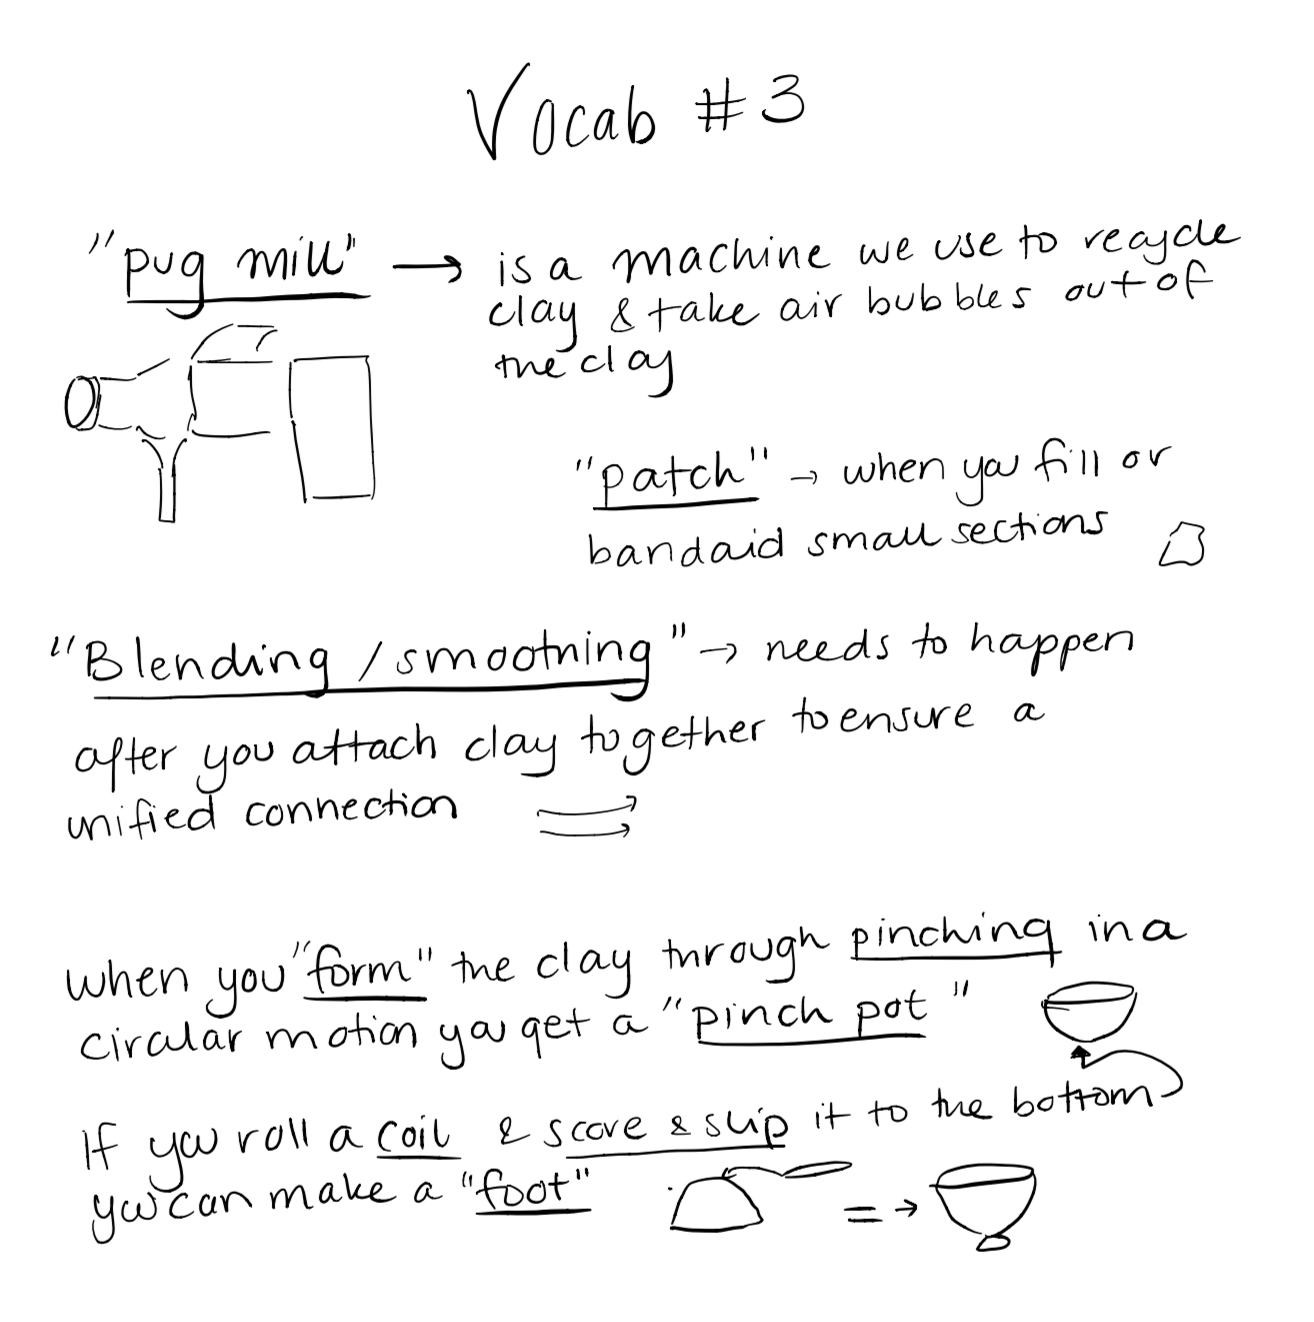 Vocab #3
"pug mill" → is a machine we use to recycle
clay & take air bubbles out of
the clay
"patch" → when you fill or
bandaid small sections
"Blending / smoothing" → needs to happen
after you attach clay together to ensure a
unified connection
when you "form" the clay through pinching in a
circular motion you get a "pinch pot"
If you roll a coil & score & slip it to the bottom
you can make a "foot"
= →